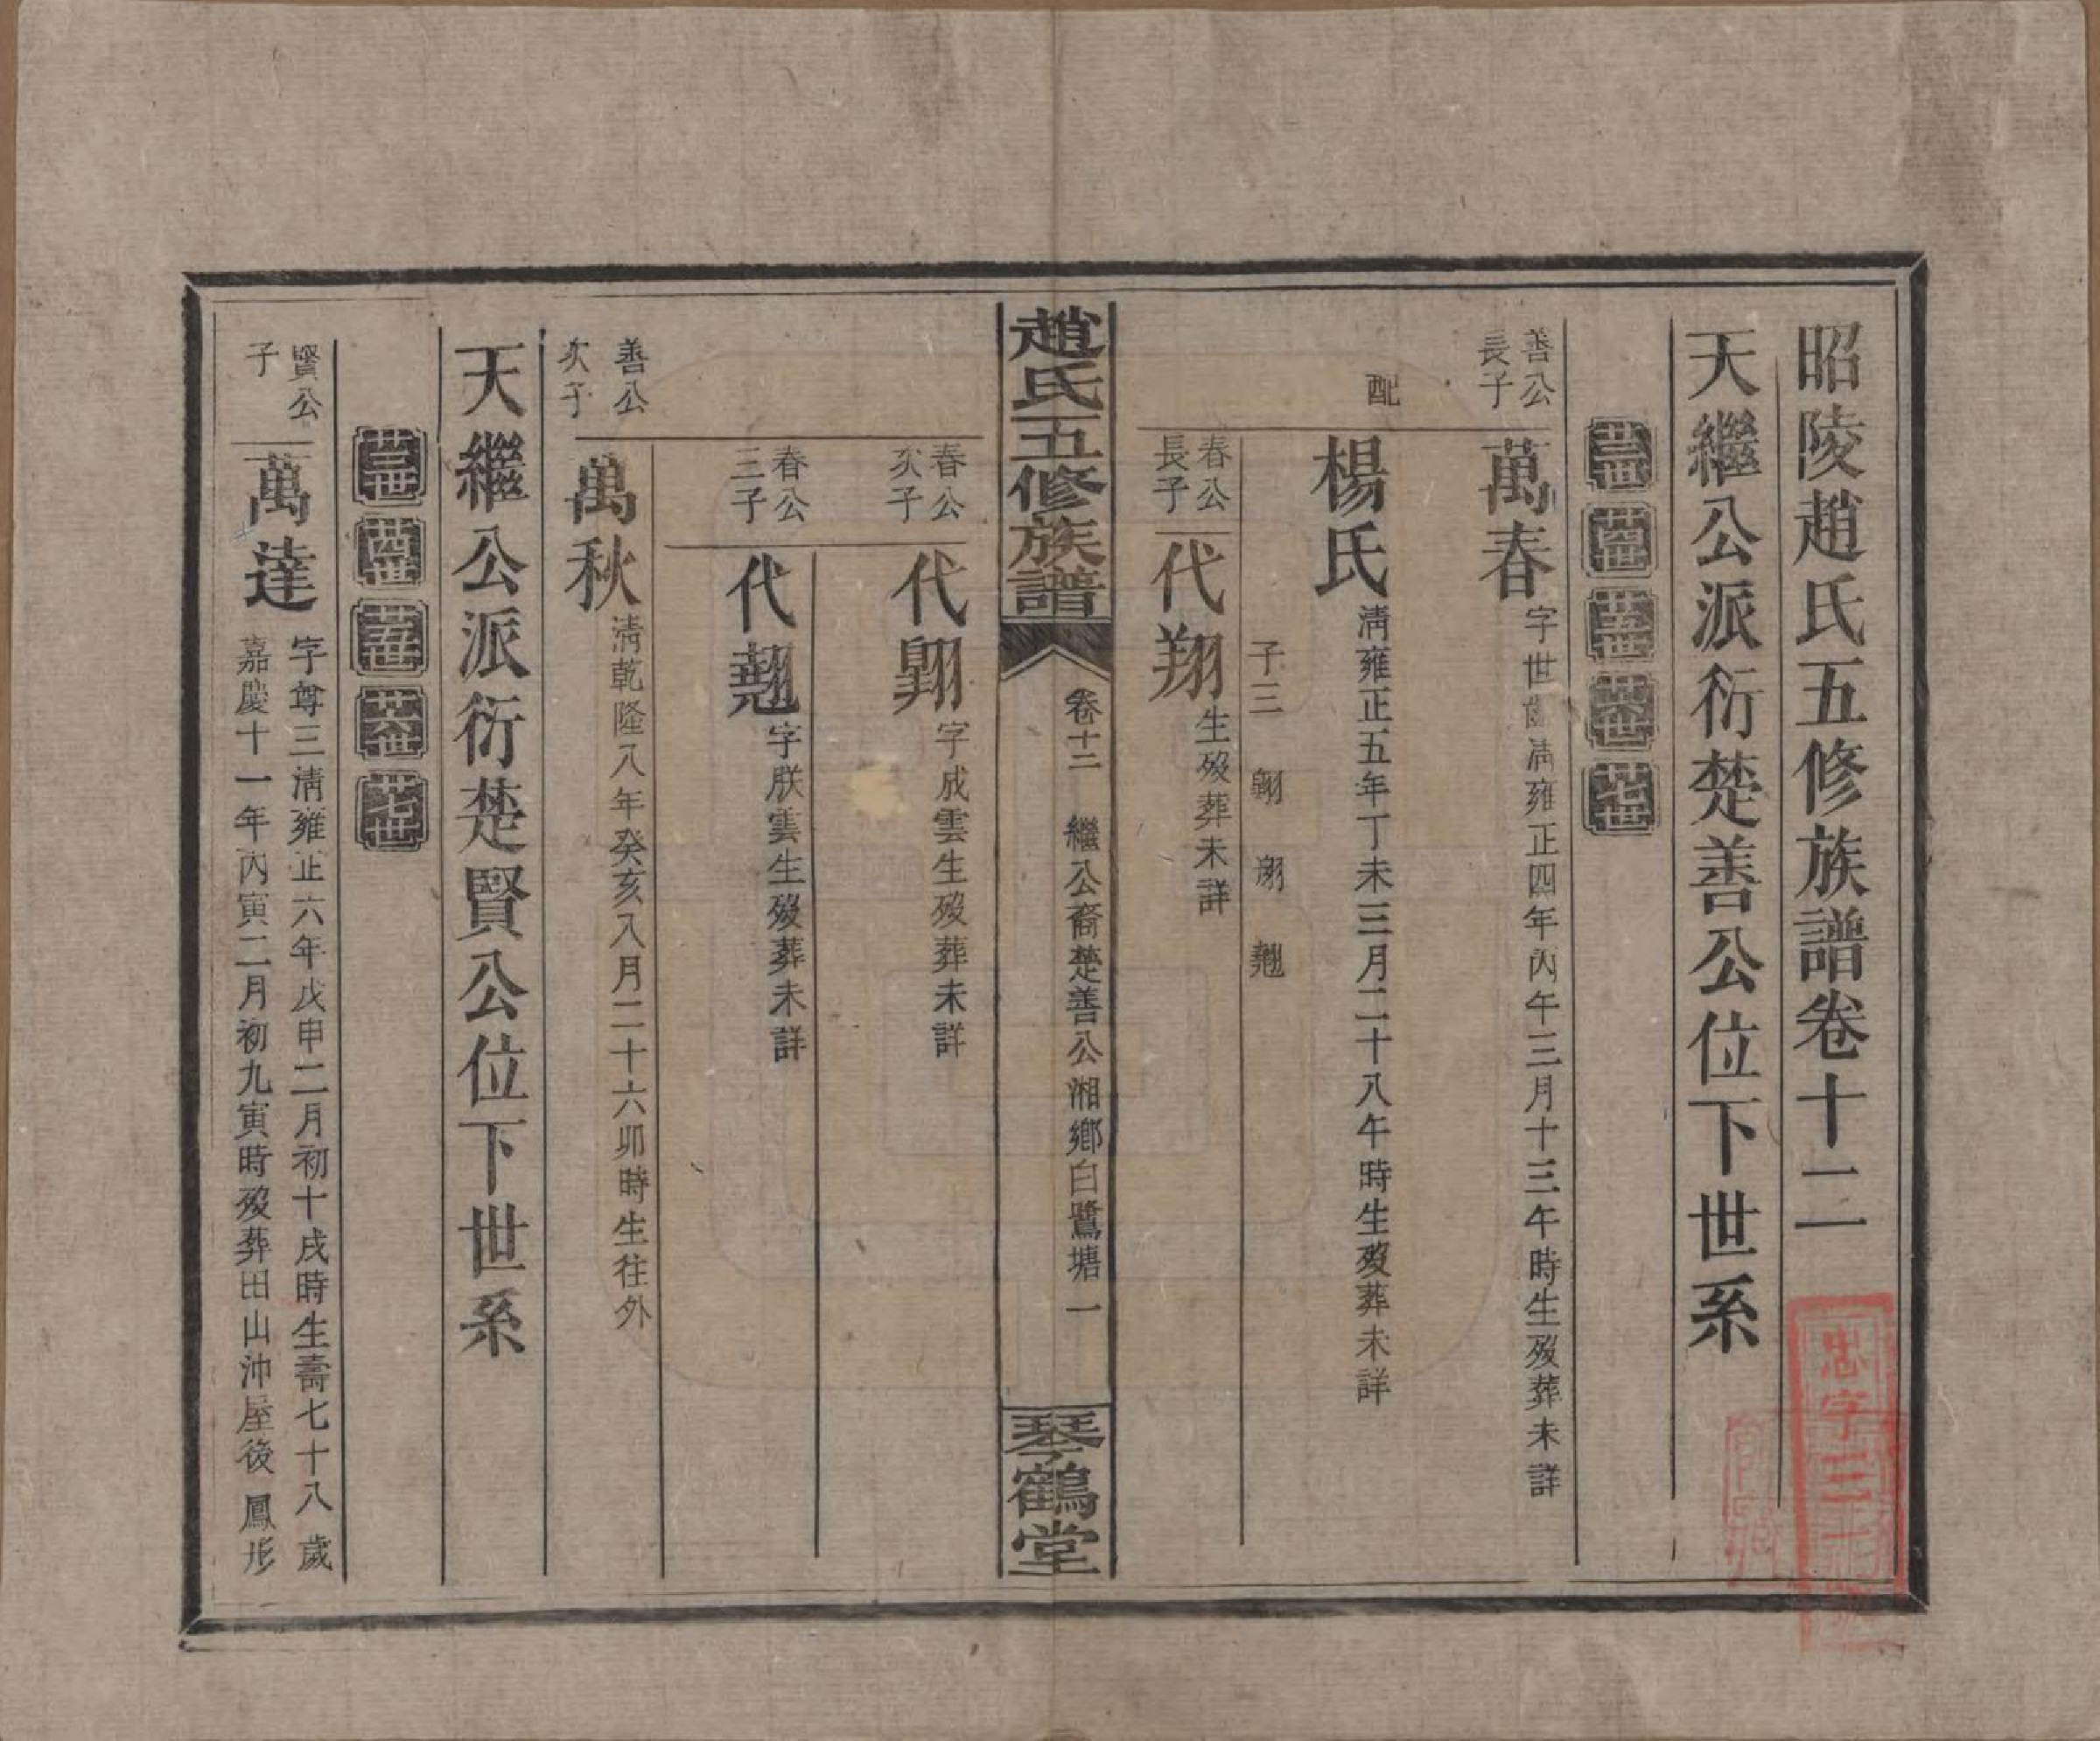 昭陵趙氏五修族譜卷十二
天繼公派衍楚善公位下世系
廿三世 廿四世 廿五世 廿六世 廿七世
善公
長子
萬春 字世 清雍正四年丙午三月十三午時生歿葬未詳
配
楊氏 清雍正五年丁未三月二十八午時生歿葬未詳
子三 翱 翅
春公
長子
代翔 生歿葬未詳
趙氏五修族譜 卷十二 繼公裔楚善公湘鄉白鷺塘 一 琴鶴堂
春公
次子
代翱 字成雲生歿葬未詳
春公
三子
代翹 字朕雲生歿葬未詳
善公
次子
萬秋 清乾隆八年癸亥八月二十六卯時生往外
天繼公派衍楚賢公位下世系
廿三世 廿四世 廿五世 廿六世 廿七世
賢公
子
萬達 字尊三清雍正六年戊申二月初十戌時生壽七十八歲
嘉慶十一年丙寅二月初九寅時歿葬田山沖屋後鳳形
忠字三